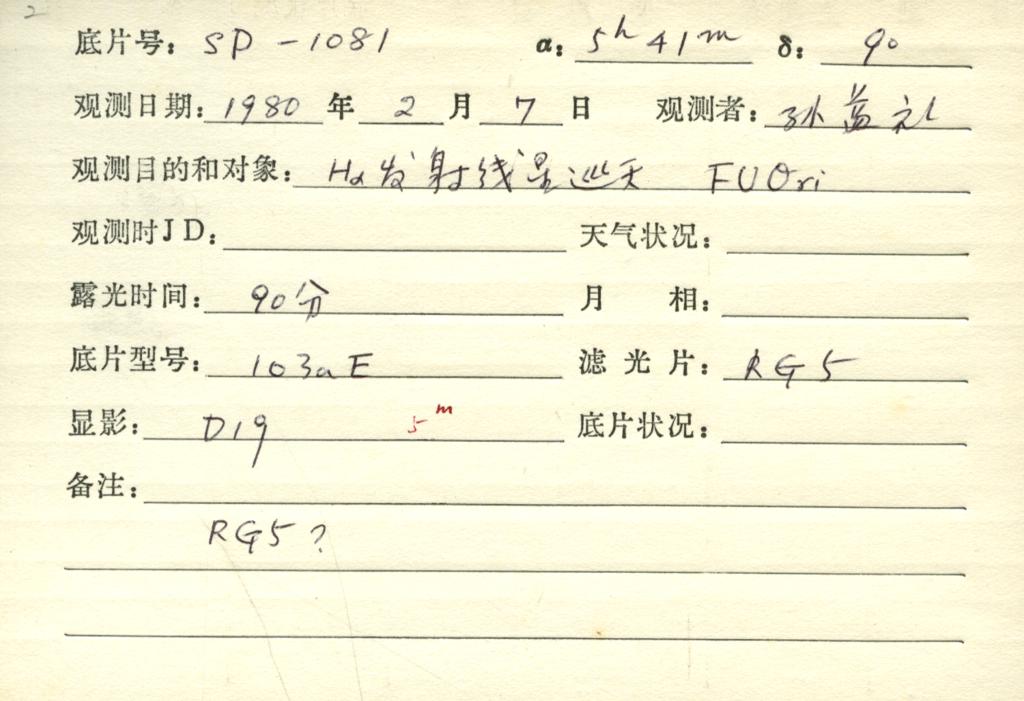 2
底片号: SP-1081 α: 5h 41m δ: 9°
观测日期: 1980 年 2 月 7 日 观测者: 孙益礼
观测目的和对象: Hα发射线星巡天 FUOri
观测时JD: 天气状况:
露光时间: 90分 月 相:
底片型号: 103aE 滤光片: RG5
显影: D19 5m 底片状况:
备注:
RG5?